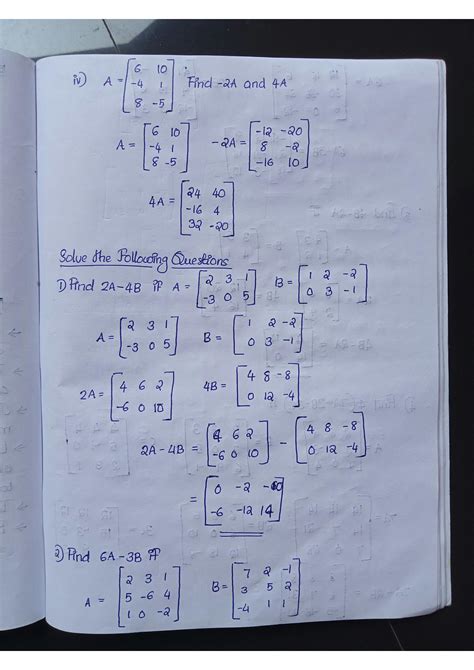 iv) A = [6 10; -4 1; 8 -5] Find -2A and 4A
A = [6 10; -4 1; 8 -5] -2A = [-12 -20; 8 -2; -16 10]
4A = [24 40; -16 4; 32 -20]
Solve the Following Questions
1) Find 2A-4B if A = [2 3 1; -3 0 5] B = [1 2 -2; 0 3 -1]
A = [2 3 1; -3 0 5] B = [1 2 -2; 0 3 -1]
2A = [4 6 2; -6 0 10] 4B = [4 8 -8; 0 12 -4]
2A-4B = [4 6 2; -6 0 10] - [4 8 -8; 0 12 -4]
= [0 -2 10; -6 -12 14]
2) Find 6A-3B if
A = [2 3 1; 5 -6 4; 1 0 -2] B = [7 2 -1; 3 5 2; -4 1 1]